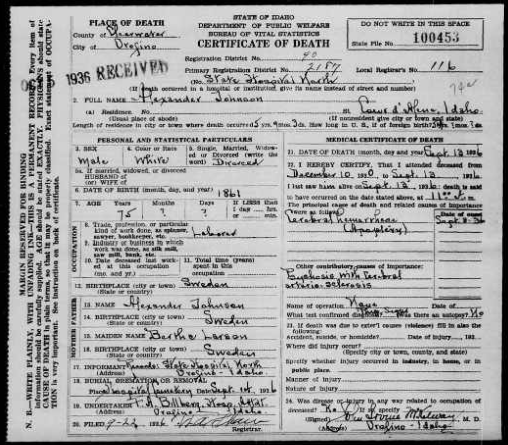 STATE OF IDAHO
DEPARTMENT OF PUBLIC WELFARE
BUREAU OF VITAL STATISTICS
CERTIFICATE OF DEATH
DO NOT WRITE IN THIS SPACE
State File No. 100453
PLACE OF DEATH
County of Clearwater
City of Orofino
1936 RECEIVED
Registration District No. 90
Primary Registration District No. 2187 Local Registrar's No. 116
(No. State Hospital North
(If death occurred in a hospital or institution, give its name instead of street and number)
2. FULL NAME Alexander Johnson
(a) Residence. No. Coeur d'Alene, Idaho.
(Usual place of abode) (If nonresident give city or town and state)
Length of residence in city or town where death occurred 5 yrs. 9 mos. 3 ds. How long in U. S., if of foreign birth? yrs. ? mos. ? ds.
PERSONAL AND STATISTICAL PARTICULARS
3. SEX Male
4. Color or Race White
5. Single, Married, Widowed or Divorced (write the word) Divorced
5a. If married, widowed, or divorced
HUSBAND of
(or) WIFE of
6. DATE OF BIRTH (month, day, and year) 1861
7. AGE Years 75 Months ? Days ? If LESS than 1 day
8. Trade, profession, or particular kind of work done, as spinner, sawyer, bookkeeper, etc. Laborer
9. Industry or business in which work was done, as silk mill, saw mill, bank, etc.
10. Date deceased last worked at this occupation (mo. and yr.)
11. Total time (years) spent in this occupation
12. BIRTHPLACE (city or town) Sweden
(State or country)
13. NAME Alexander Johnson
14. BIRTHPLACE (city or town) Sweden
(State or country)
15. MAIDEN NAME Bertha Larson
16. BIRTHPLACE (city or town) Sweden
(State or country)
17. INFORMANT Records State Hospital North
Orofino - Idaho
18. BURIAL, CREMATION OR REMOVAL
Place Hospital Cemetery Date Sept. 14, 1936
19. UNDERTAKER
Orofino - Idaho
20. FILED 1936
Registrar.
MEDICAL CERTIFICATE OF DEATH
21. DATE OF DEATH (month, day, and year) Sept. 13 1936
22. I HEREBY CERTIFY, That I attended deceased from
December 10, 1930, to Sept. 13, 1936
I last saw him alive on Sept. 13, 1936; death is said
to have occurred on the date stated above, at 11:00 m.
The principal cause of death and related causes of importance were as follows:
Cerebral hemorrhage
(Apoplexy)
Other contributory causes of importance:
Psychosis with cerebral
arteriosclerosis
Name of operation None
What test confirmed diagnosis? Was there an autopsy? No
23. If death was due to external causes (violence) fill in also the following:
Accident, suicide, or homicide? Date of injury
Where did injury occur?
(Specify city or town, county, and state)
Specify whether injury occurred in industry, in home, or in public place.
Manner of injury
Nature of injury
24. Was disease or injury in any way related to occupation of deceased? No If so, specify
(Signed) M. D.
Orofino - Idaho
MARGIN RESERVED FOR BINDING
N. B.—WRITE PLAINLY, WITH UNFADING INK—THIS IS A PERMANENT RECORD. Every item of
information should be carefully supplied. AGE should be stated EXACTLY. PHYSICIANS should state
CAUSE OF DEATH in plain terms, so that it may be properly classified. Exact statement of OCCUPATION is very important. See instructions on back of certificate.
FATHER
MOTHER